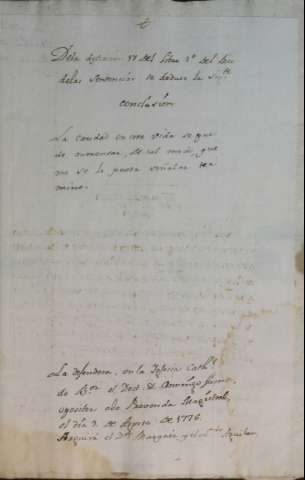 De la distincion 17 del libro 1º del Mro
de las Sentencias se deduce la Sigte
Conclusion
La caridad en esta vida se que
de aumentar, de tal modo, que
no se le pueda señalar ter
mino.
La defendera, en la Iglesia Cathl
de el Doct. D. Domingo
opositor a la Prevenda Magistral,
el dia 3 de Agosto de 1776.
Arguirà el Dr y el Dr Aguilar